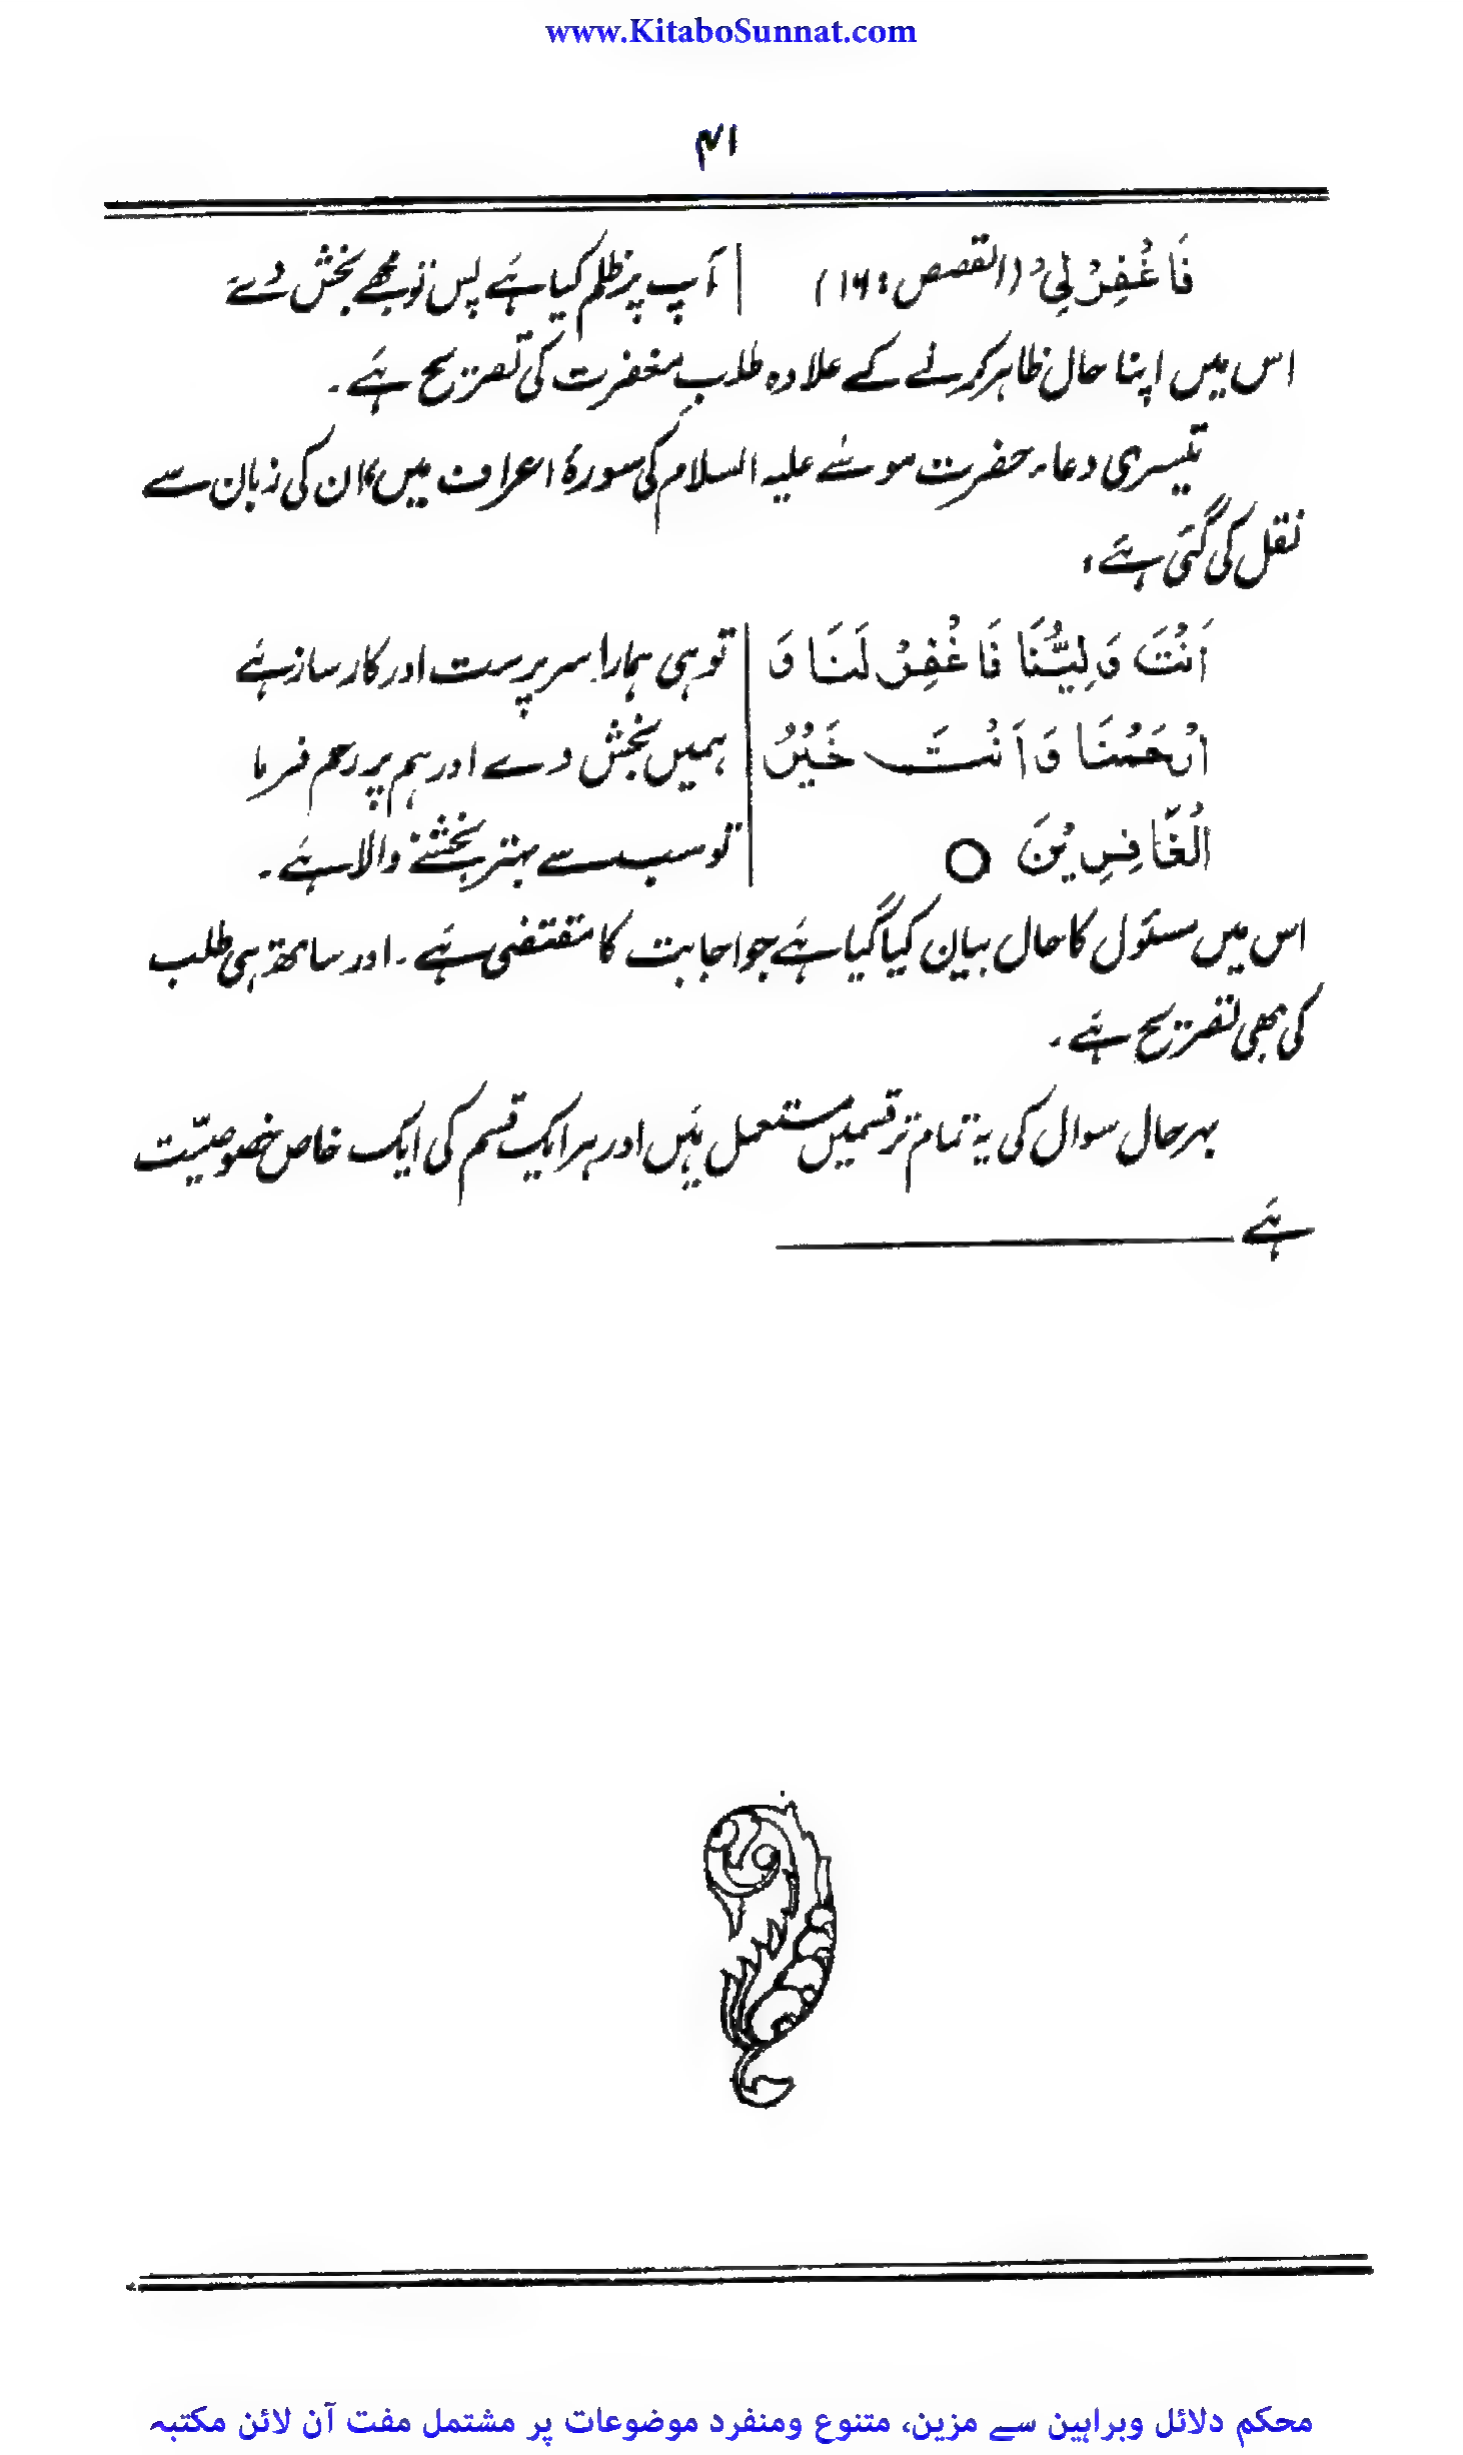 www.KitaboSunnat.com
۴۱
فَاغْفِرْ لِیْ (القصص: ۱۶) | آپ پر ظلم کیا ہے پس تو مجھے بخش دے
اس میں اپنا حال ظاہر کرنے کے علاوہ طلب مغفرت کی تصریح ہے۔
تیسری دعاء حضرت موسٰے علیہ السلام کی سورۂ اعراف میں، ان کی زبان سے
نقل کی گئی ہے:
اَنْتَ وَلِیُّنَا فَاغْفِرْ لَنَا وَ | تو ہی ہمارا سرپرست اور کارساز ہے
ارْحَمْنَا وَاَنْتَ خَیْرُ | ہمیں بخش دے اور ہم پر رحم فرما
الْغَافِرِیْنَ ○ | تو سب سے بہتر بخشنے والا ہے۔
اس میں مسئول کا حال بیان کیا گیا ہے جو اجابت کا مقتضی ہے۔ اور ساتھ ہی طلب
کی بھی تصریح ہے۔
بہرحال سوال کی یہ تمام تر قسمیں مستعمل ہیں اور ہر ایک قسم کی ایک خاص خصوصیّت
ہے
محکم دلائل وبراہین سے مزین، متنوع ومنفرد موضوعات پر مشتمل مفت آن لائن مکتبہ